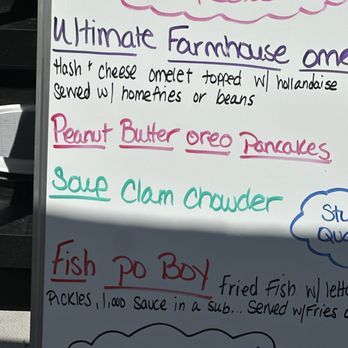 Ultimate Farmhouse ome
Hash + cheese omelet topped w/ hollandaise
Served w/ homefries or beans
Peanut Butter oreo Pancakes
Soup Clam Chowder
Stu
Qua
Fish po Boy Fried Fish w/ lettu
Pickles, 1,000 sauce in a sub... Served w/Fries o